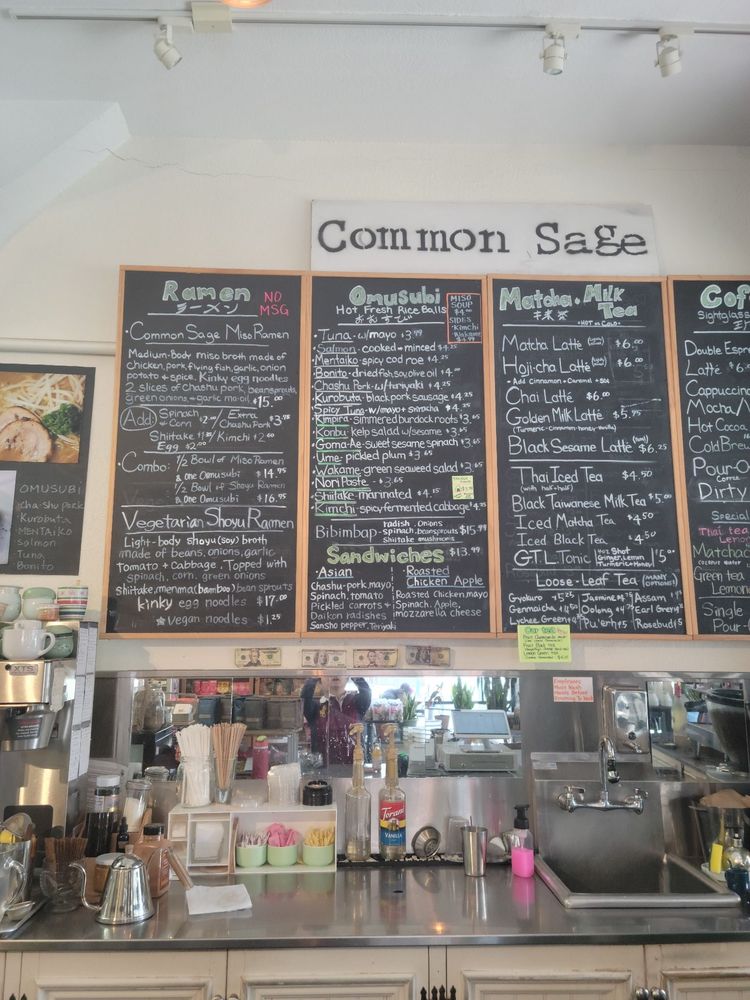 Common Sage
Ramen
ラーメン
NO
MSG
Common Sage Miso Ramen
Medium-Body miso broth made of
chicken, pork, flying fish, garlic, onion
potato & spice. Kinky egg noodles
2 slices of chashu pork, beansprouts,
green onions & garlic mo-oil $15.00
Add
Spinach
Corn
Extra
Chashu Pork
Shiitake
Kimchi
Egg $2.00
Combo: 1/2 Bowl of Miso Ramen
& one Omusubi $14.95
1/2 Bowl of Shoyu Ramen
& One Omusubi $16.95
Vegetarian Shoyu Ramen
Light-body shoyu (soy) broth
made of beans, onions, garlic
tomato + Cabbage. Topped with
spinach, corn, green onions
shiitake, menma (bamboo), bean sprouts
kinky egg noodles $17.00
Vegan noodles $1.25
Omusubi
Hot Fresh Rice Balls
おむすび
MISO
SOUP
SIDES
Kimchi
Wakame
Tuna - w/mayo
Salmon - cooked + minced $4.25
Mentaiko - spicy cod roe $4.25
Bonito - dried fish, soy, olive oil $4.00
Chashu Pork - w/teriyaki $4.25
Kurobuta - black pork sausage $4.25
Spicy Tuna - w/mayo + sriracha $4.25
Kimpira - simmered burdock roots
Konbu - kelp salad w/sesame $3.65
Goma-Ae - Sweet sesame spinach
Ume - picked plum $3.65
Wakame - green seaweed salad
Nori Paste - $3.65
Shiitake - marinated $4.15
Kimchi - spicy fermented cabbage
Bibimbap - radish, onions
spinach, beansprouts
shiitake mushrooms
$15.99
Sandwiches $13.99
Asian
Chashu-pork, mayo,
Spinach, tomato
Pickled carrots +
Daikon radishes
Sansho pepper, Teriyaki
Roasted
Chicken Apple
Roasted Chicken, mayo
Spinach, Apple,
mozzarella cheese
Matcha & Milk
Tea
HOT or COLD
Matcha Latté $6.00
Hoji-cha Latté $6.00
Add Cinnamon + Caramel
Chai Latté $6.00
Golden Milk Latté $5.95
Black Sesame Latté $6.25
Thai Iced Tea $4.50
(with half+half)
Black Taiwanese Milk Tea $5.00
Iced Matcha Tea $4.50
Iced Black Tea $4.50
G.T.L. Tonic
4oz Shot
Ginger, Lemon
Turmeric + Honey
$5.00
Loose-Leaf Tea (MANY OPTIONS)
Gyokuro
Jasmine
Assam
Genmaicha
Oolong
Earl Grey
Lychee Green
Pu'erh
Rosebud
Sightglass
Double Esp
Latté
Cappuccino
Mocha
Hot Cocoa
Cold Brew
Pour-O
Dirty
Special
Thai tea
Matcha
Green tea
Lemon
Single
Pour-O
OMUSUBI
Chashu pork
Kurobuta
MENTAIKO
Salmon
Tuna
Bonito
Employees
Must Wash
Hands Before
Returning To Work
XTS
Torani
VANILLA